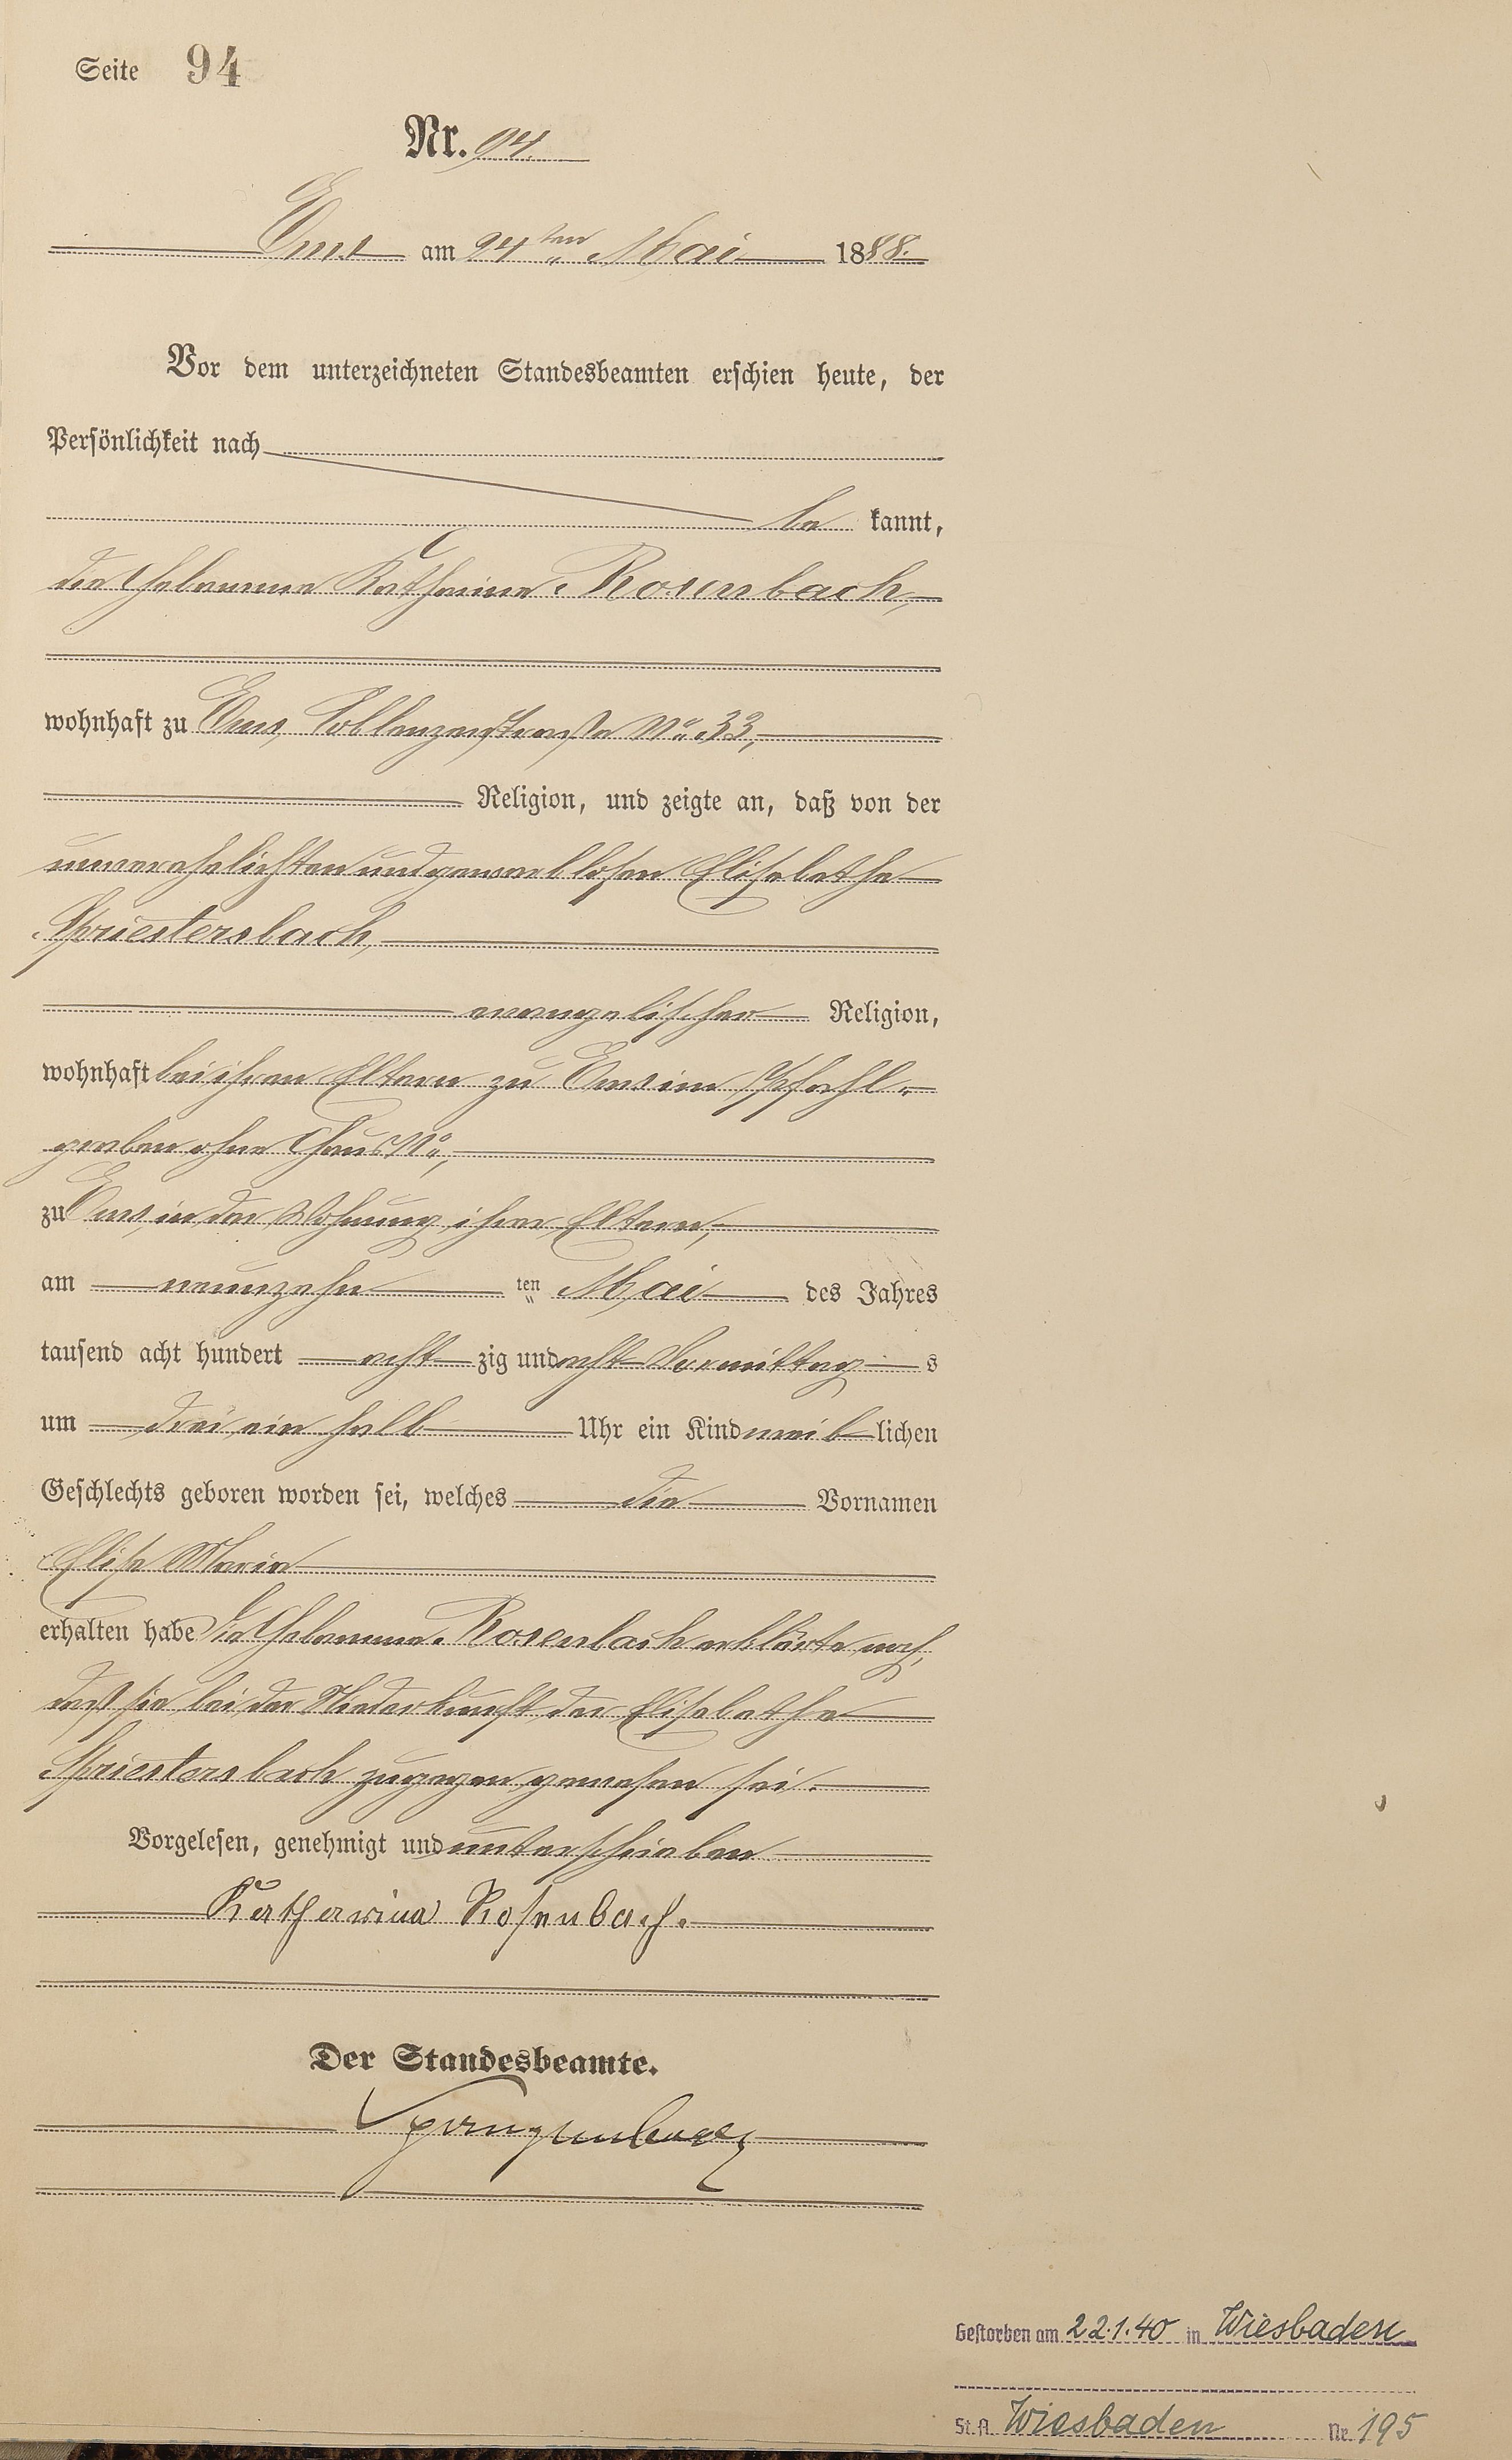 Seite 94
Nr. 94.
Ems am 24ten Mai 1888.
Vor dem unterzeichneten Standesbeamten erschien heute, der
Persönlichkeit nach
be kannt,
die Hebamme Katharina Rosenbach,
wohnhaft zu Ems, Coblenzerstraße No. 33,
Religion, und zeigte an, daß von der
unverehelichten und gewerblosen Elisabethe
Spriestersbach,
evangelischer Religion,
wohnhaft bei ihren Eltern zu Ems im Pfahl-
graben ohne Haus No.,
zu Ems in der Wohnung ihrer Eltern,
am neunzehn ten Mai des Jahres
tausend acht hundert acht zig und acht Vormittag s
um drei ein halb Uhr ein Kind weib lichen
Geschlechts geboren worden sei, welches die Vornamen
Elise Maria
erhalten habe Die Hebamme Rosenbach erklärte noch,
daß sie bei der Niederkunft der Elisabethe
Spriestersbach zugegen gewesen sei.
Vorgelesen, genehmigt und unterschrieben
Katharina Rosenbach.
Der Standesbeamte.
Spangenberg
Gestorben am 22.1.40 in Wiesbaden
St.A. Wiesbaden Nr. 195